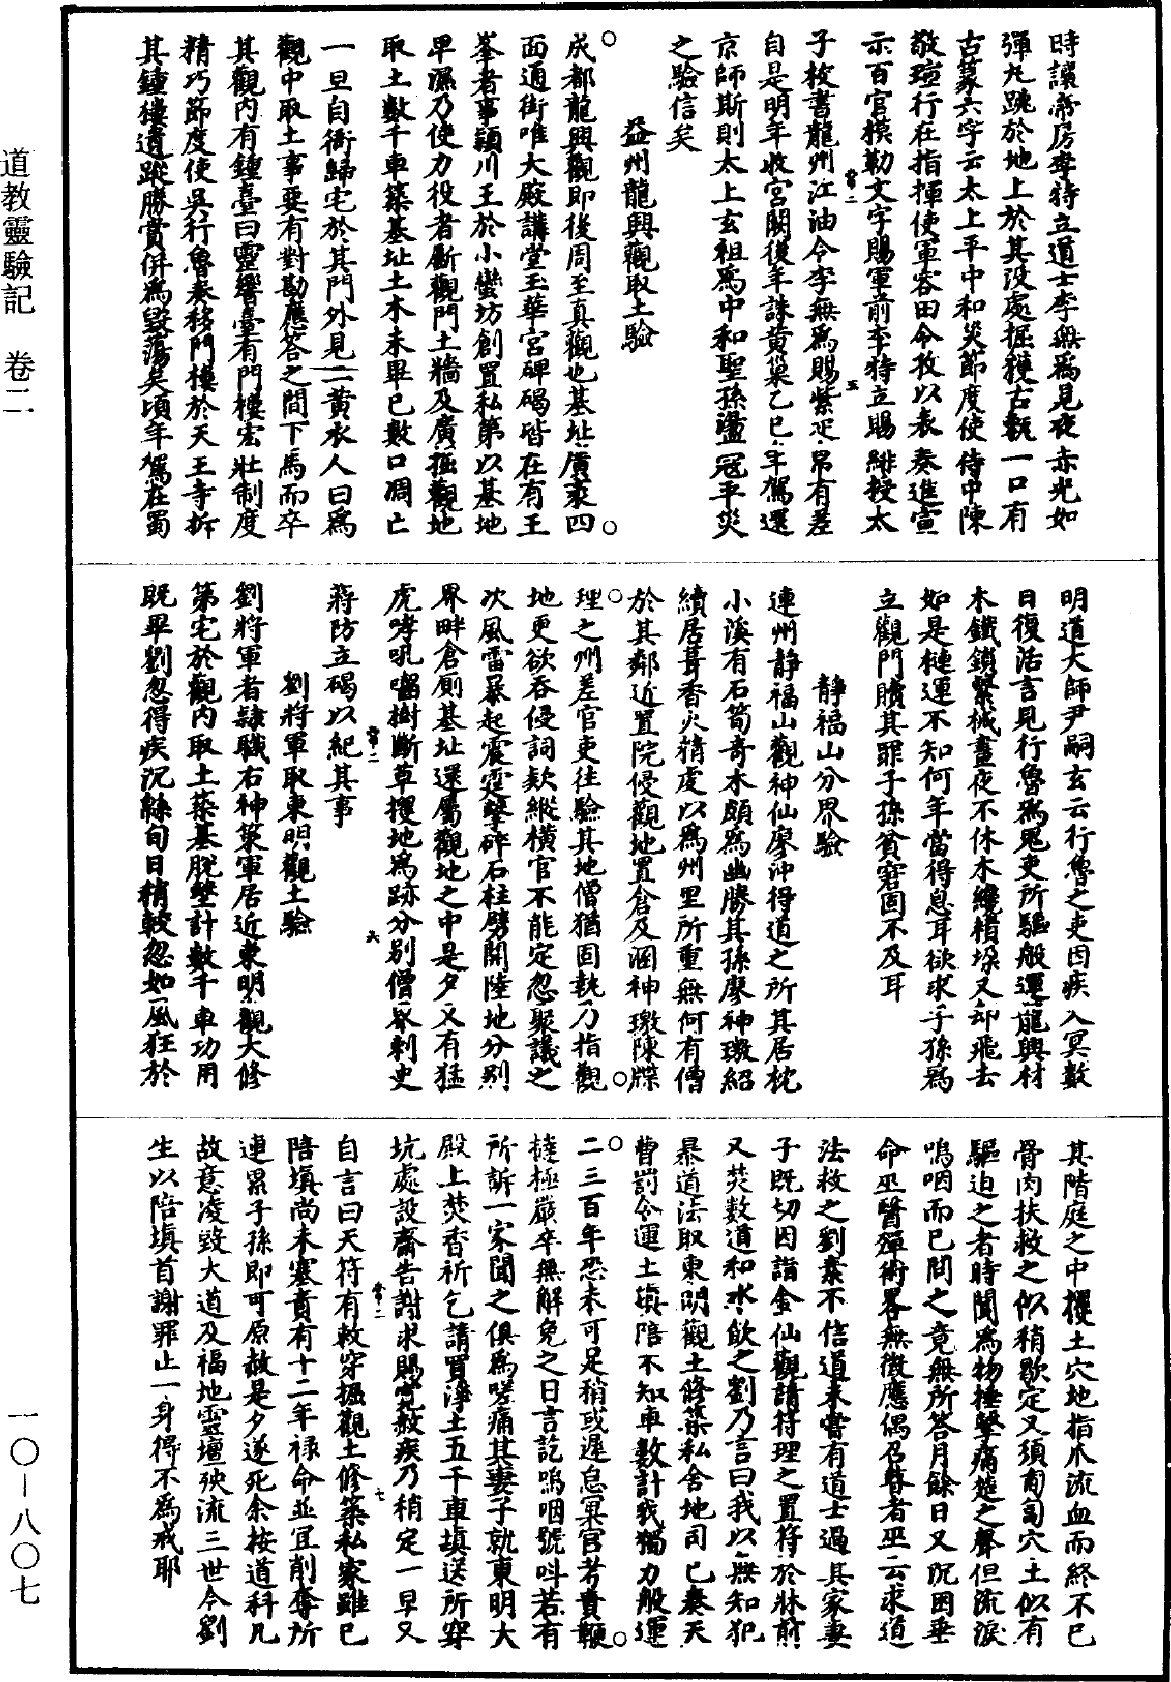 時讓帝房李特立道士李無爲見夜赤光如
彈丸跳於地上於其没處掘穫古甎一口有
古篆六字云太上平中和災節度使侍中陳
敬瑄行在指揮使軍容田令孜以表奏進宣
示百官模勒文字賜軍前李特立賜緋授太
子校書龍州江油令李無爲賜紫疋帛有差
自是明年收宮闕後年誅黄巢乙巳年駕還
京師斯則太上玄祖爲中和聖孫盪冠平災
之驗信矣
益州龍興觀取土驗
成都龍興觀即後周至真觀也基址廣袤四
面通街唯大殿講堂玉華宮碑碣皆在有王
峯者事頴川王於小蠻坊創置私第以基地
早濕乃使力役者斸觀門土牆及廣掘觀地
取土數千車築基址土木未畢已數口凋亡
一旦自衙歸宅於其門外見二黄衣人曰爲
觀中取土事要有對勘應答之間下馬而卒
其觀内有鍾臺曰靈響臺有門樓宏壯制度
精巧節度使吳行魯奏移門樓於天王寺拆
其鍾樓遺蹤勝賞併爲毀蕩矣頃年駕在蜀
明道大師尹嗣玄云行魯之吏因疾入冥數
日復活言見行魯爲鬼吏所驅般運龍興材
木鐵鎖繫械晝夜不休木纔積垛又却飛去
如是梿運不知何年當得息耳欲求子孫爲
立觀門贖其罪子孫貧窘固不及耳
靜福山分界驗
連州靜福山觀神仙廖沖得道之所其居枕
小溪有石筍奇木頗爲幽勝其孫廖神璬紹
續居葺香火精虔以爲州里所重無何有僧
於其鄰近置院侵觀地置倉及溷神璬陳牒
理之州差官吏往驗其地僧猶固執乃指觀
地更欲吞侵詞款縱横官不能定忽聚議之
次風雷暴起震霆擊碎石柱劈開陸地分别
界畔倉厠基址還屬觀地之中是夕又有猛
虎哮吼囓樹斷草摆地爲跡分别僧界刺史
蔣防立碣以紀其事
劉將軍取東明觀土驗
劉將軍者隷職右神策軍居近東明觀大修
第宅於觀内取土築基脱墼計數千車功用
既畢劉忽得疾沉緜旬日稍較忽如風狂於
其階庭之中攫土穴地指爪流血而終不已
骨肉扶救之似稍歇定又須匍匐穴土似有
驅迫之者時聞爲物捶擊痛楚之聲但流淚
嗚咽而已問之竟無所答月餘日又沉困垂
命巫醫殫術畧無徵應偶召瞽者巫云求道
法救之劉素不信道未嘗有道士過其家妻
子既切因詣金仙觀請符理之置符於牀前
又焚數道和水飲之劉乃言曰我以無知犯
暴道法取東明觀土修築私舍地司已奏天
曹罰令運土填陪不知車數計我獨力般運
二三百年恐未可足稍或遲怠冥官考責鞭
撻極嚴卒無解免之日言訖嗚咽號呌若有
所訴一家聞之俱爲嗟痛其妻子就東明大
殿上焚香祈乞請買淨土五千車填送所穿
坑處設齋告謝求賜寬赦疾乃稍定一旱又
自言曰天符有敕穿掘觀土修築私家雖已
陪填尚未塞責有十二年禄命並宜削奪所
連累子孫即可原赦是夕遂死余按道科凡
故意凌毀大道及福地靈壇殃流三世今劉
生以陪填首謝罪止一身得不爲戒耶
道教靈驗記 卷二
一〇—八〇七